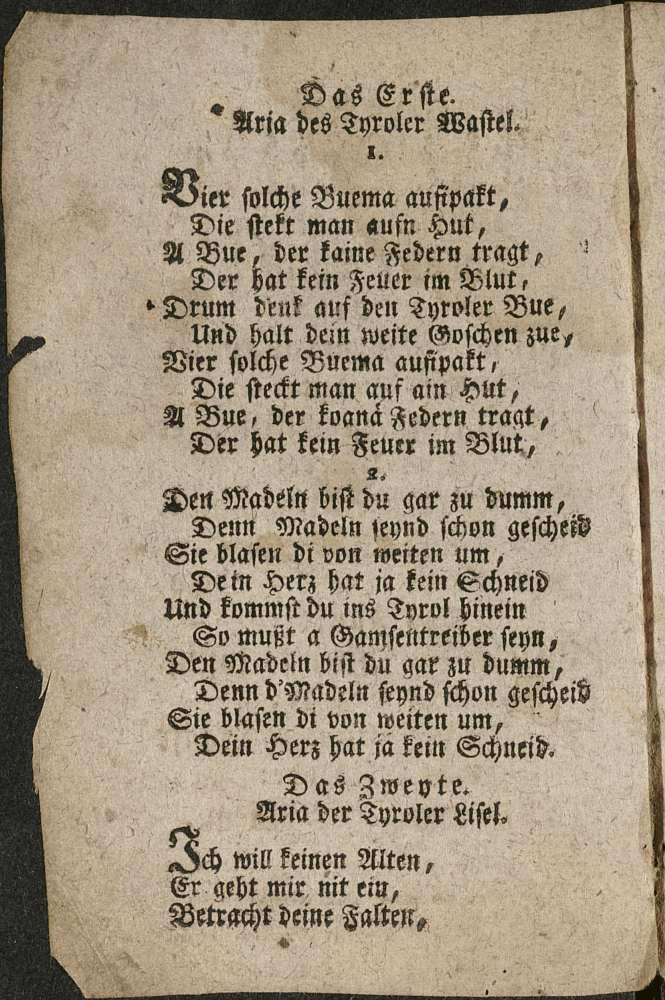 Das Erste.
Aria des Tyroler Wastel.
1.
Vier solche Buema aufipakt,
Die stekt man aufn Hut,
A Bue, der kaine Federn tragt,
Der hat kein Feuer im Blut,
Drum denk auf den Tyroler Bue,
Und halt dein weite Goschen zue,
Vier solche Buema aufipakt,
Die steckt man auf ain Hut,
A Bue, der koanä Federn tragt,
Der hat kein Feuer im Blut,
2.
Den Madeln bist du gar zu dumm,
Denn Madeln seynd schon gescheid
Sie blasen di von weiten um,
Dein Herz hat ja kein Schneid
Und kommst du ins Tyrol hinein
So mußt a Gamsentreiber seyn,
Den Madeln bist du gar zu dumm,
Denn d'Madeln seynd schon gescheid
Sie blasen di von weiten um,
Dein Herz hat ja kein Schneid.
Das Zweyte.
Aria der Tyroler Lisel.
Ich will keinen Alten,
Er geht mir nit ein,
Betracht deine Falten,